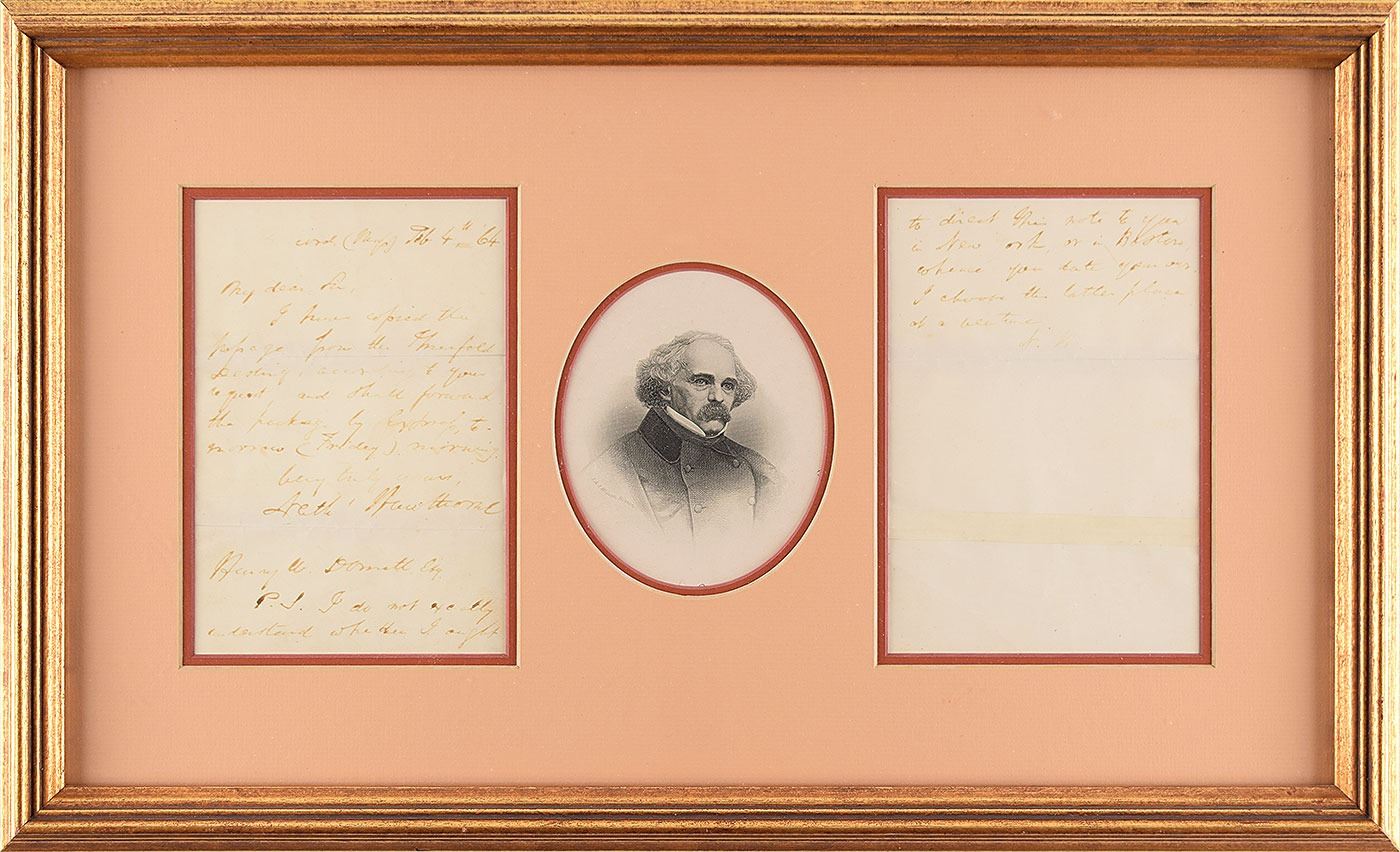 cord (Mass) Feb 4th 64
My dear Sir,
I have copied the
passage from the Threefold
Destiny, according to your
request, and shall forward
the package by Express, to-
morrow (Friday) morning.
Very truly yours,
Nath' Hawthorne
Henry Esq.
P.S. I do not exactly
understand whether I ought
to direct this note to you
in New York, or in Boston,
whence you date yours.
I choose the latter place
at a venture.
N. H.